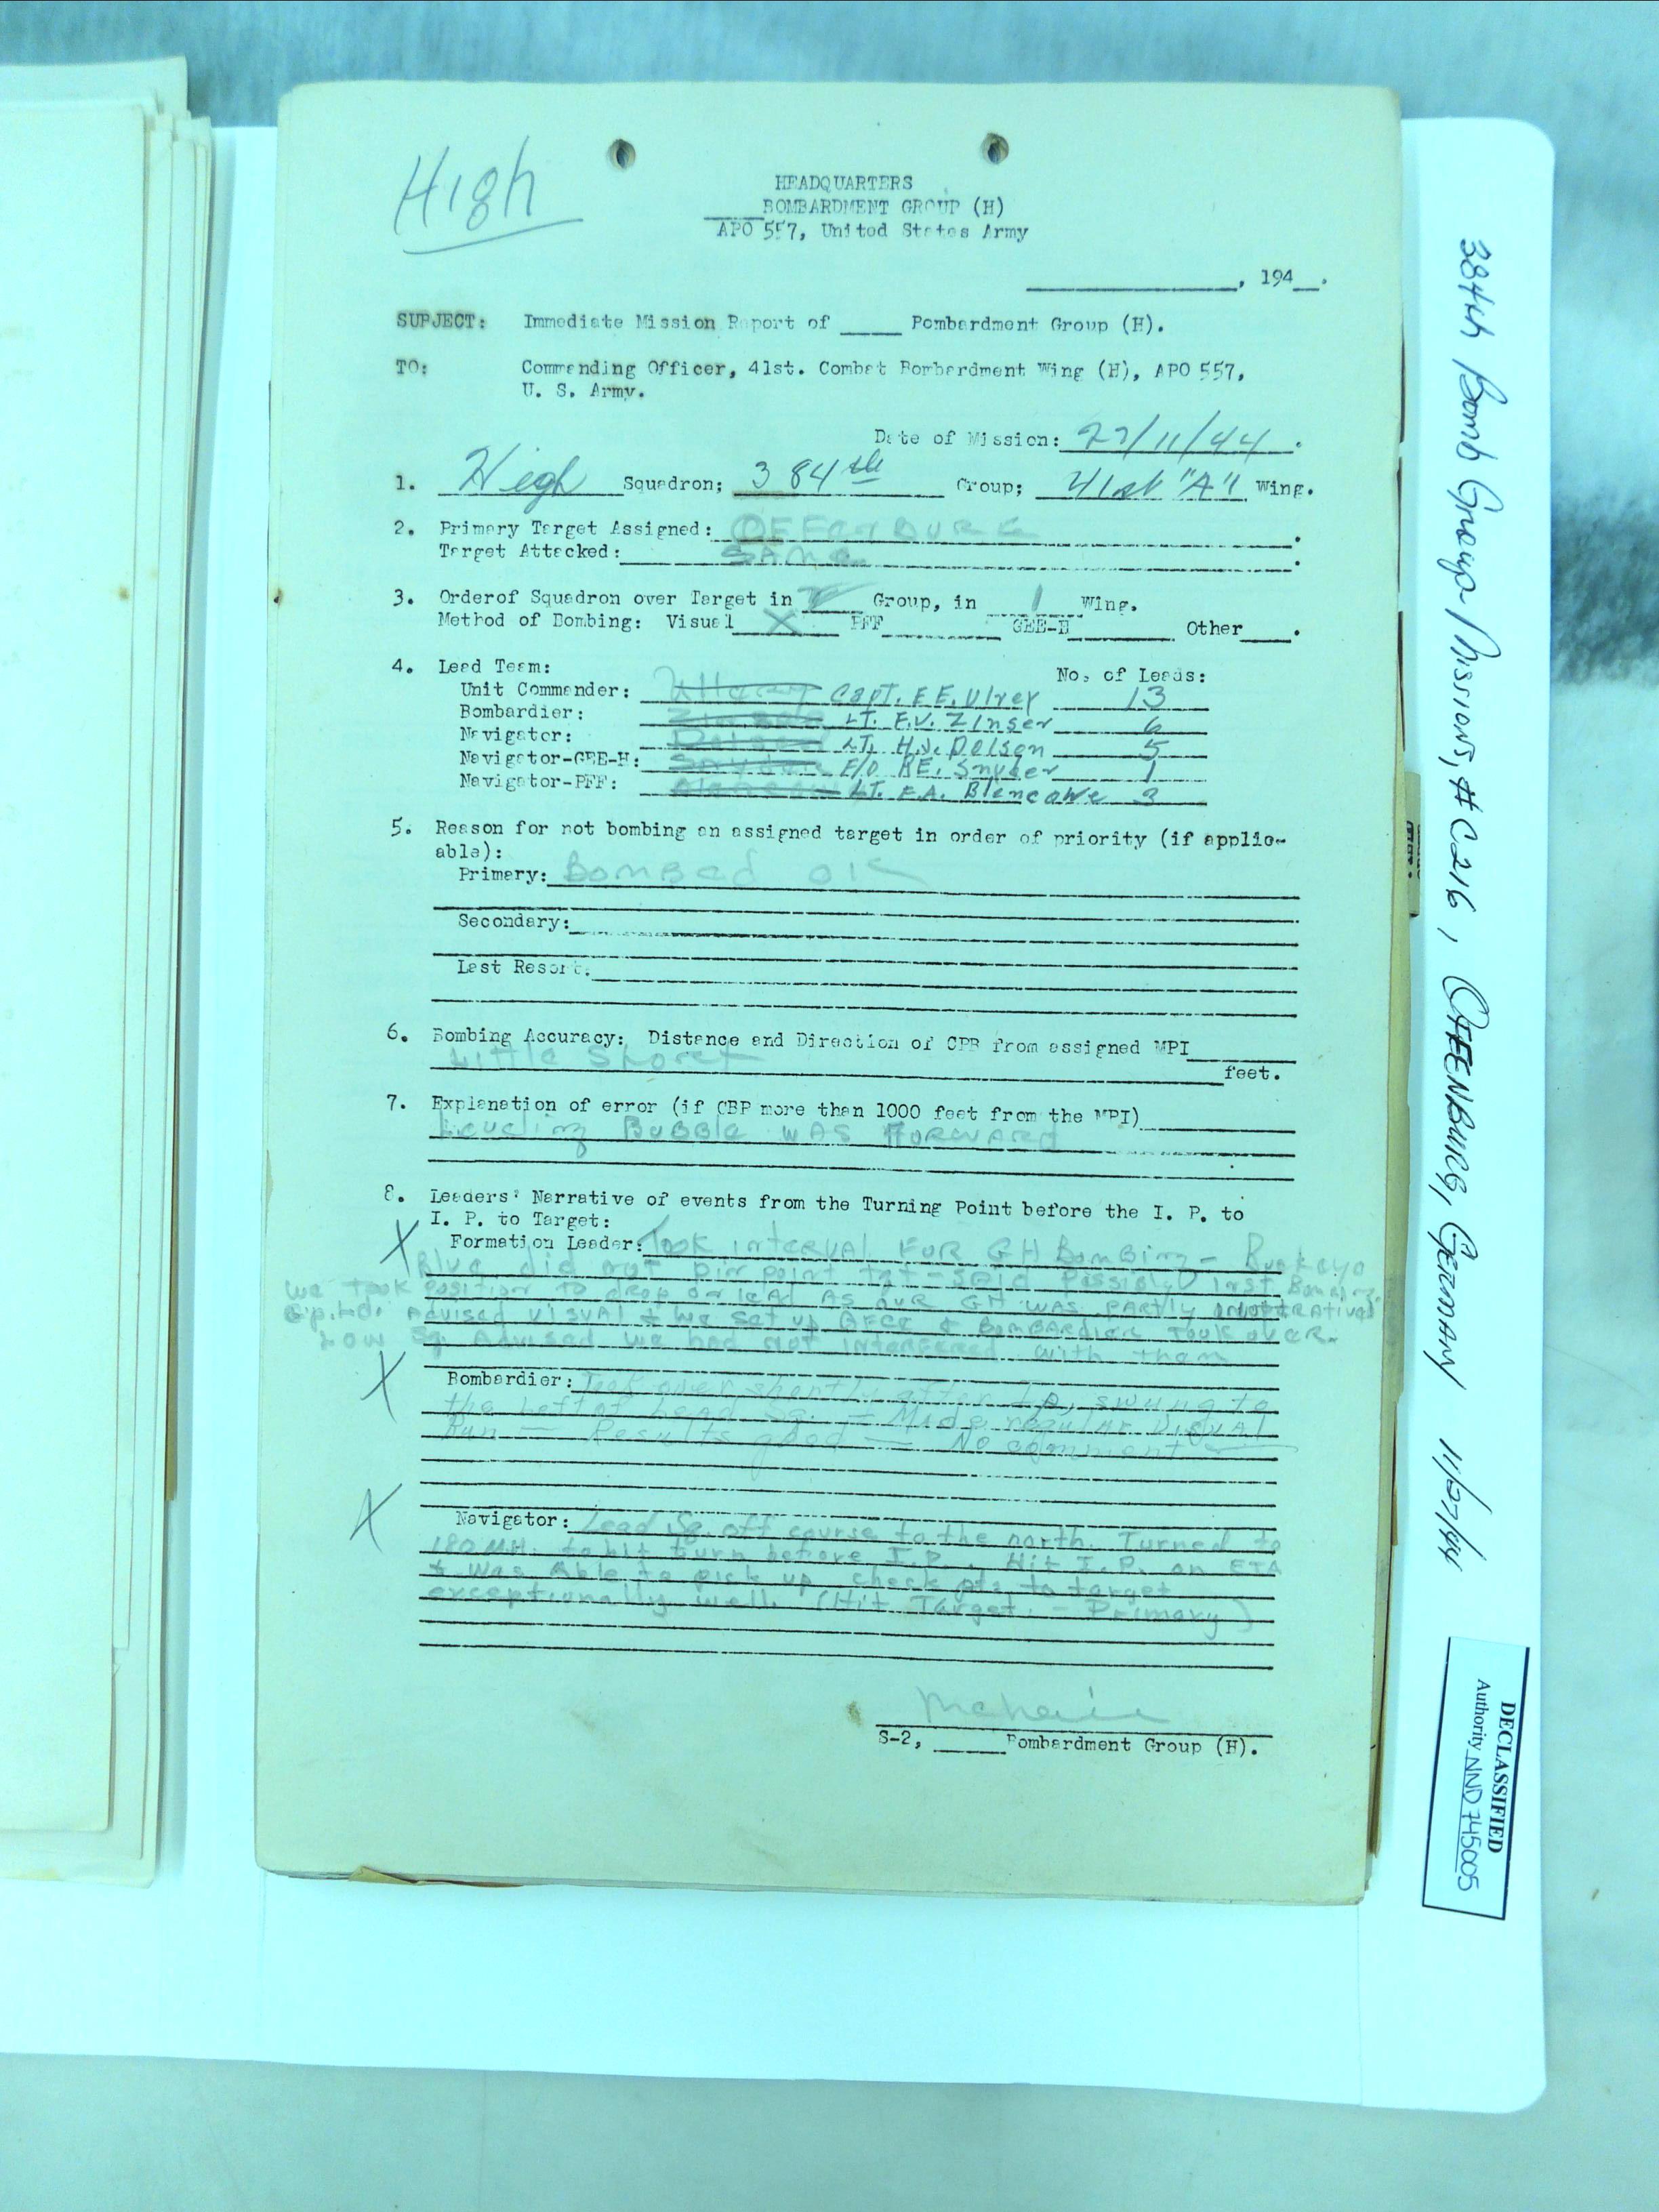 High
HEADQUARTERS
____BOMBARDMENT GROUP (H)
APO 557, United States Army
____________, 194__.
SUBJECT: Immediate Mission Report of ____ Bombardment Group (H).
TO: Commanding Officer, 41st. Combat Bombardment Wing (H), APO 557,
U. S. Army.
Date of Mission: 27/11/44.
1. High Squadron; 384th Group; 41st "A" Wing.
2. Primary Target Assigned: OFFENBURG.
Target Attacked: SAME.
3. Orderof Squadron over Target in Group, in 1 Wing.
Method of Bombing: Visual X PFF____ GEE-H____ Other____.
4. Lead Team: No. of Leads:
Unit Commander: Capt. E E. Ulrey 13
Bombardier: LT. E.V. Zinser 6
Navigator: LT. H.J. Dolson 5
Navigator-GEE-H: F/O RE. Snyder 1
Navigator-PFF: LT. F.A. 3
5. Reason for not bombing an assigned target in order of priority (if applic-
able):
Primary: Bombed OK
Secondary:
Last Resort:
6. Bombing Accuracy: Distance and Direction of CPB from assigned MPI
Little Short feet.
7. Explanation of error (if CBP more than 1000 feet from the MPI)
Leveling Bubble WAS FORWARD
8. Leaders' Narrative of events from the Turning Point before the I. P. to
I. P. to Target:
X Formation Leader: Took interval FOR GH Bombing - Buckeye
Blue did not pin point tgt - said Possibly inst. Bombing.
We took Position to drop on lead AS OUR GH WAS partly inoperative
Gp. Ld. Advised visual & we set up AFCE & BOMBARDIER TOOK OVER.
Low Sq. Advised we had not interfered with them
X Bombardier: Took over shortly after I.P., swung to
the Left of Lead Sq. - Made regular Visual
Run - Results good - No comment
X Navigator: Lead Sq. off course to the north. Turned to
180 M.H. to hit turn before I.P.. Hit I.P. on ETA
& Was Able to pick up check pts to target
exceptionally well. (Hit Target. - Primary)
S-2, ____Bombardment Group (H).
384th Bomb Group Missions, #C216, OFFENBURG, GERMANY 11/27/44
DECLASSIFIED
Authority NND 745005